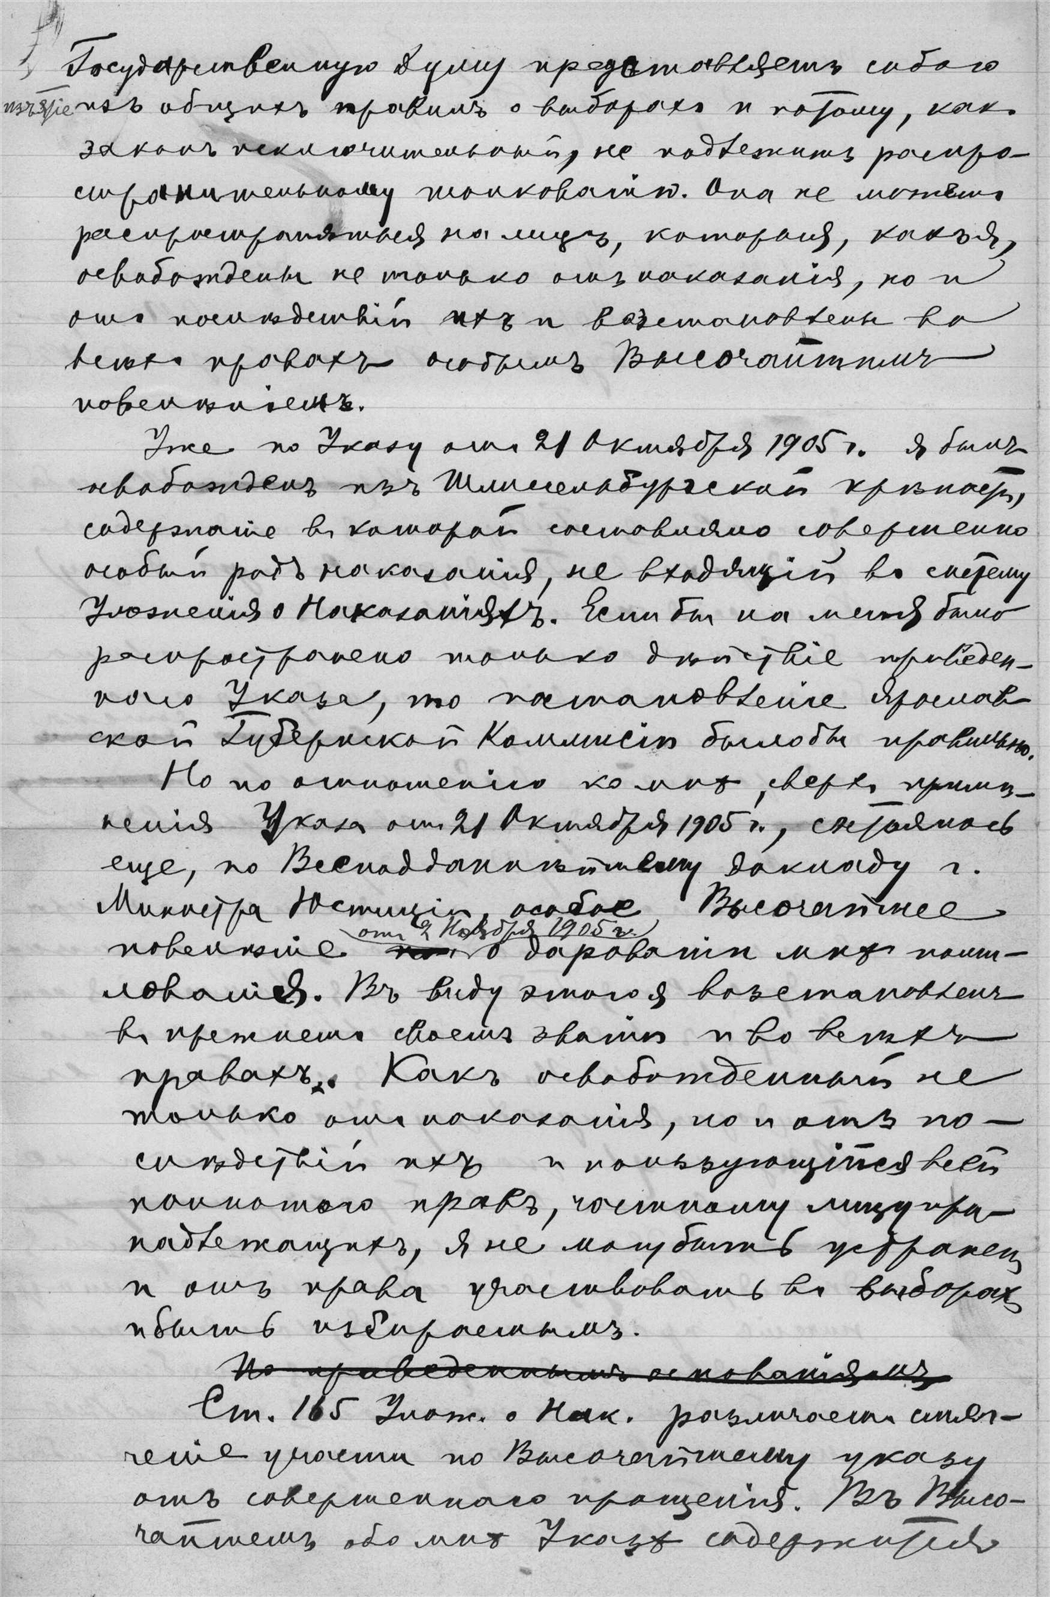 Государственную Думу представляетъ собою
изъятіе изъ общихъ правилъ о выборахъ и потому, какъ
законъ исключительный, не подлежитъ распро-
странительному толкованію. Она не можетъ
распространяться на лицъ, которыя, какъ я,
освобождены не только отъ наказанія, но и
отъ послѣдствій ихъ и возстановлены во
всѣхъ правахъ особымъ Высочайшимъ
повелѣніемъ.
Уже по Указу отъ 21 Октября 1905 г. я былъ
освобожденъ изъ Шлиссельбургской крѣпости,
содержаніе въ которой составляло совершенно
особый родъ наказанія, не входящій въ систему
Уложенія о Наказаніяхъ. Если бы на меня было
распространено только дѣйствіе приведен-
наго Указа, то постановленіе Ярослав-
ской Губернской Коммисіи было бы правильно.
Но по отношенію ко мнѣ, сверхъ примѣ-
ненія Указа отъ 21 Октября 1905 г., состоялось
еще, по Всеподданнѣйшему докладу г.
Министра Юстиціи, особое Высочайшее
отъ 2 Ноября 1905 г.
повелѣніе о дарованіи мнѣ поми-
лованія. Въ виду этого я возстановленъ
въ прежнемъ своемъ званіи и во всѣхъ
правахъ. Какъ освобожденный не
только отъ наказанія, но и отъ по-
слѣдствій ихъ и пользующійся всей
полнотою правъ, частному лицу при-
надлежащихъ, я не могу быть устраненъ
и отъ права участвовать въ выборахъ
и быть избираемымъ.
По приведеннымъ основаніямъ
Ст. 165 Улож. о Нак. различаетъ смяг-
ченіе участи по Высочайшему указу
отъ совершеннаго прощенія. Въ Высо-
чайшемъ обо мнѣ Указѣ содержится